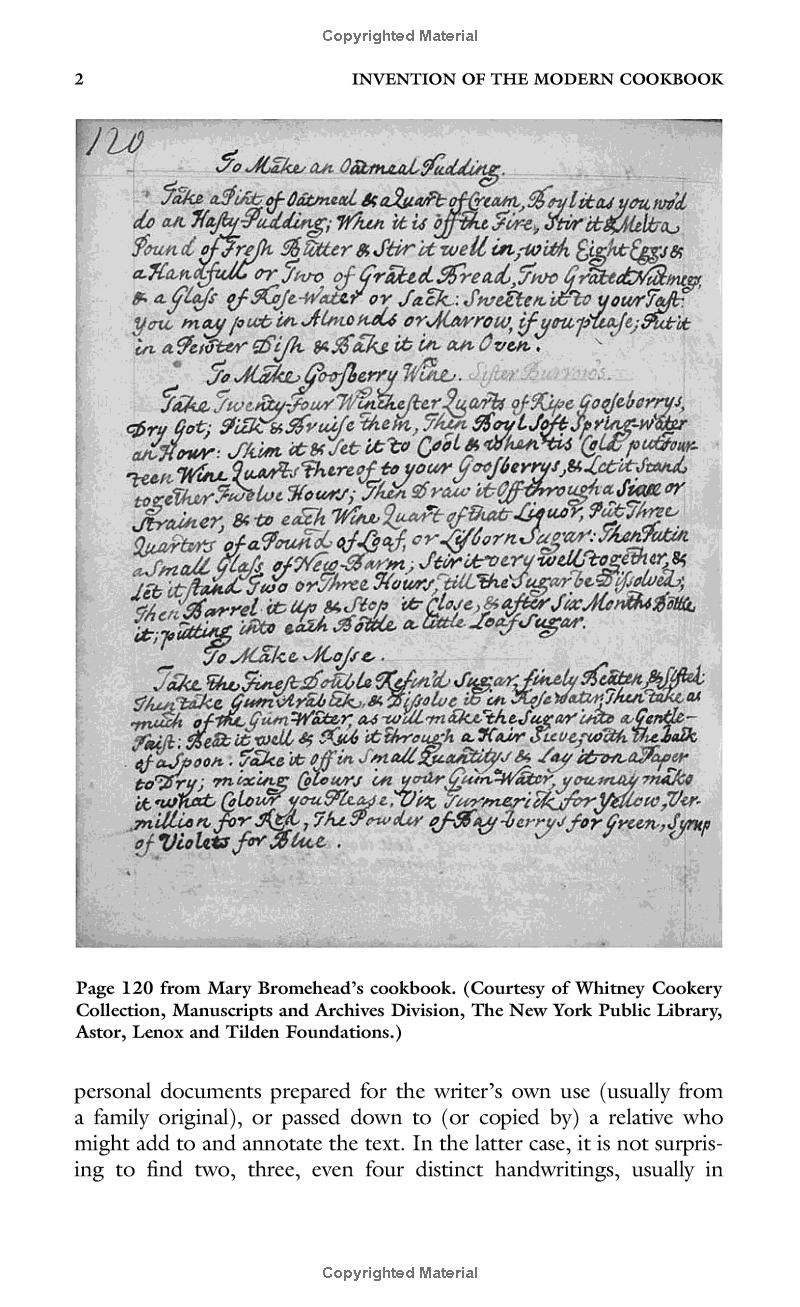 Copyrighted Material
2 INVENTION OF THE MODERN COOKBOOK
120
To Make an Oatmeal Pudding.
Take a Pint of Oatmeal & a Quart of Cream, Boyl it as you wo'd
do an Hasty-Pudding; When it is off the Fire, Stir it & Melt a
Pound of Fresh Butter & Stir it well in, with Eight Eggs &
a Handfull or Two of Grated Bread, Two Grated Nutmegs,
& a Glass of Rose-Water or Sack: Sweeten it to your Tast:
You may put in Almonds or Marrow, if you please; Put it
in a Pewter Dish & Bake it in an Oven.
To Make Goosberry Wine. Sister Burrows.
Take Twenty-Four Winchester Quarts of Ripe Gooseberrys,
Dry Got; Pick & Bruise them, Then Boyl Soft Spring-water
an Hour: Skim it & Set it to Cool & when 'tis Cold put four-
teen Wine Quarts thereof to your Goosberrys, & Let it Stand
together Twelve Hours; Then Draw it Off through a or
Strainer, & to each Wine Quart of that Liquor, Put Three
Quarters of a Pound of Loaf, or Lisborn Sugar: Then Put in
a Small Glass of New-Barm; Stir it very well together, &
let it stand Two or Three Hours, till the Sugar be Dissolved;
Then Barrel it up & Stop it Close, & after Six Months Bottle
it; putting into each Bottle a little Loaf Sugar.
To Make Mosse.
Take the Finest Double Refin'd Sugar, finely Beaten, & Sifted:
Then take Gum Arabick, & Dissolve it in Rose water, Then take as
much of the Gum-Water, as will make the Sugar into a Gentle-
Paist: Beat it well & Rub it through a Hair Sieve, with the back
of a Spoon. Take it off in Small Quantitys & Lay it on a Paper
to Dry; mixing Colours in your Gum-Water, you may make
it what Colour you Please, Viz Turmerick for Yellow, Ver-
million for Red, The Powder of Bay-berrys for Green, Syrup
of Violets for Blue.
Page 120 from Mary Bromehead's cookbook. (Courtesy of Whitney Cookery
Collection, Manuscripts and Archives Division, The New York Public Library,
Astor, Lenox and Tilden Foundations.)
personal documents prepared for the writer's own use (usually from
a family original), or passed down to (or copied by) a relative who
might add to and annotate the text. In the latter case, it is not surpris-
ing to find two, three, even four distinct handwritings, usually in
Copyrighted Material